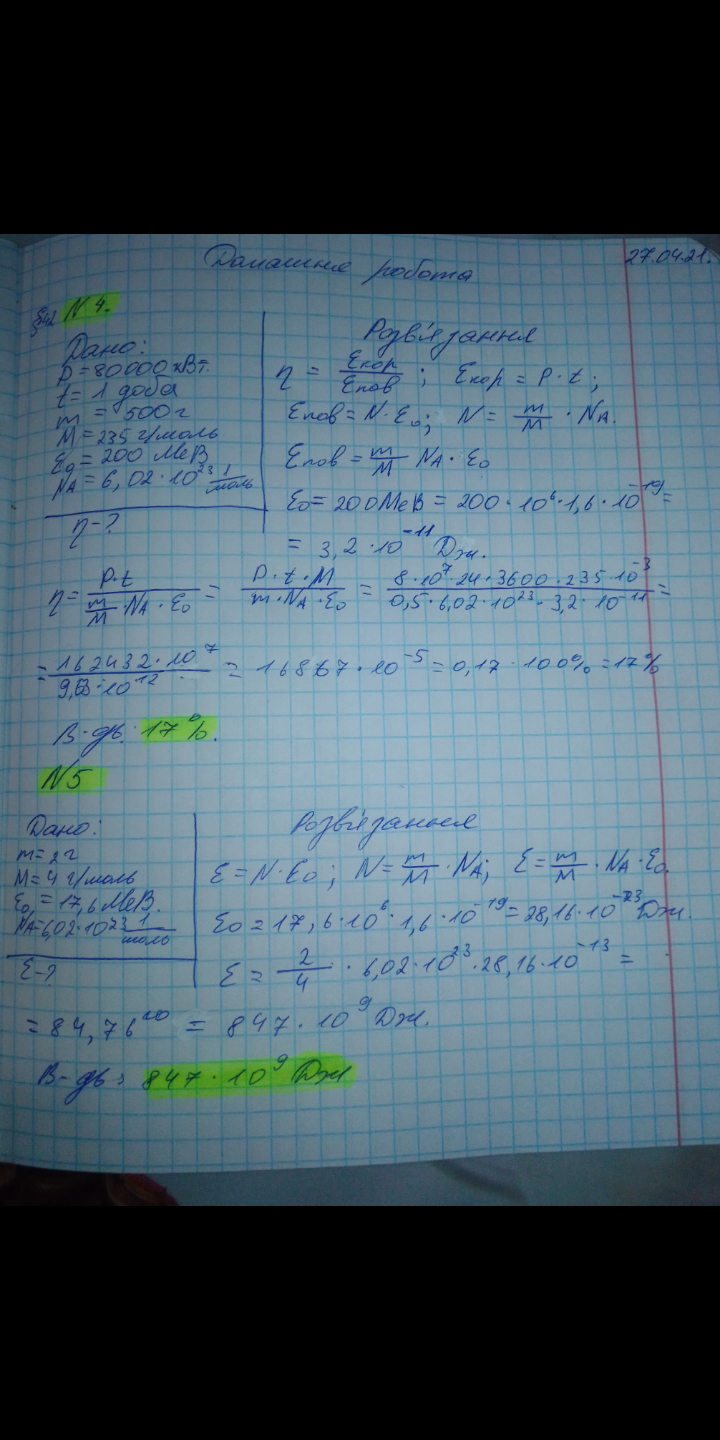 Домашня робота
27.04.21.
§42 №4.
Дано:
P = 80000 кВт.
t = 1 доба
m = 500 г
M = 235 г/моль
E₀ = 200 МеВ
N_A = 6,02·10²³ 1/моль
η - ?
Розв'язання
η = Eкор/Eпов; Eкор = P·t;
Eпов = N·E₀; N = m/M · N_A.
Eпов = m/M N_A·E₀
E₀ = 200 МеВ = 200·10⁶·1,6·10⁻¹⁹ =
= 3,2·10⁻¹¹ Дж.
η = P·t / (m/M · N_A · E₀) = P·t·M / (m·N_A·E₀) = 8·10⁷·24·3600·235·10⁻³ / (0,5·6,02·10²³·3,2·10⁻¹¹) =
= 162432·10⁷ / 10¹² = 16867·10⁻⁵ = 0,17·100% = 17%
В-дь: 17%.
№5
Дано:
m = 2 г
M = 4 г/моль
E₀ = 17,6 МеВ.
N_A = 6,02·10²³ 1/моль
E - ?
Розв'язання
E = N·E₀; N = m/M · N_A; E = m/M · N_A · E₀.
E₀ = 17,6·10⁶·1,6·10⁻¹⁹ = 28,16·10⁻¹³ Дж.
E = 2/4 · 6,02·10²³·28,16·10⁻¹³ =
= 84,76¹⁰ = 847·10⁹ Дж.
В-дь: 847·10⁹ Дж